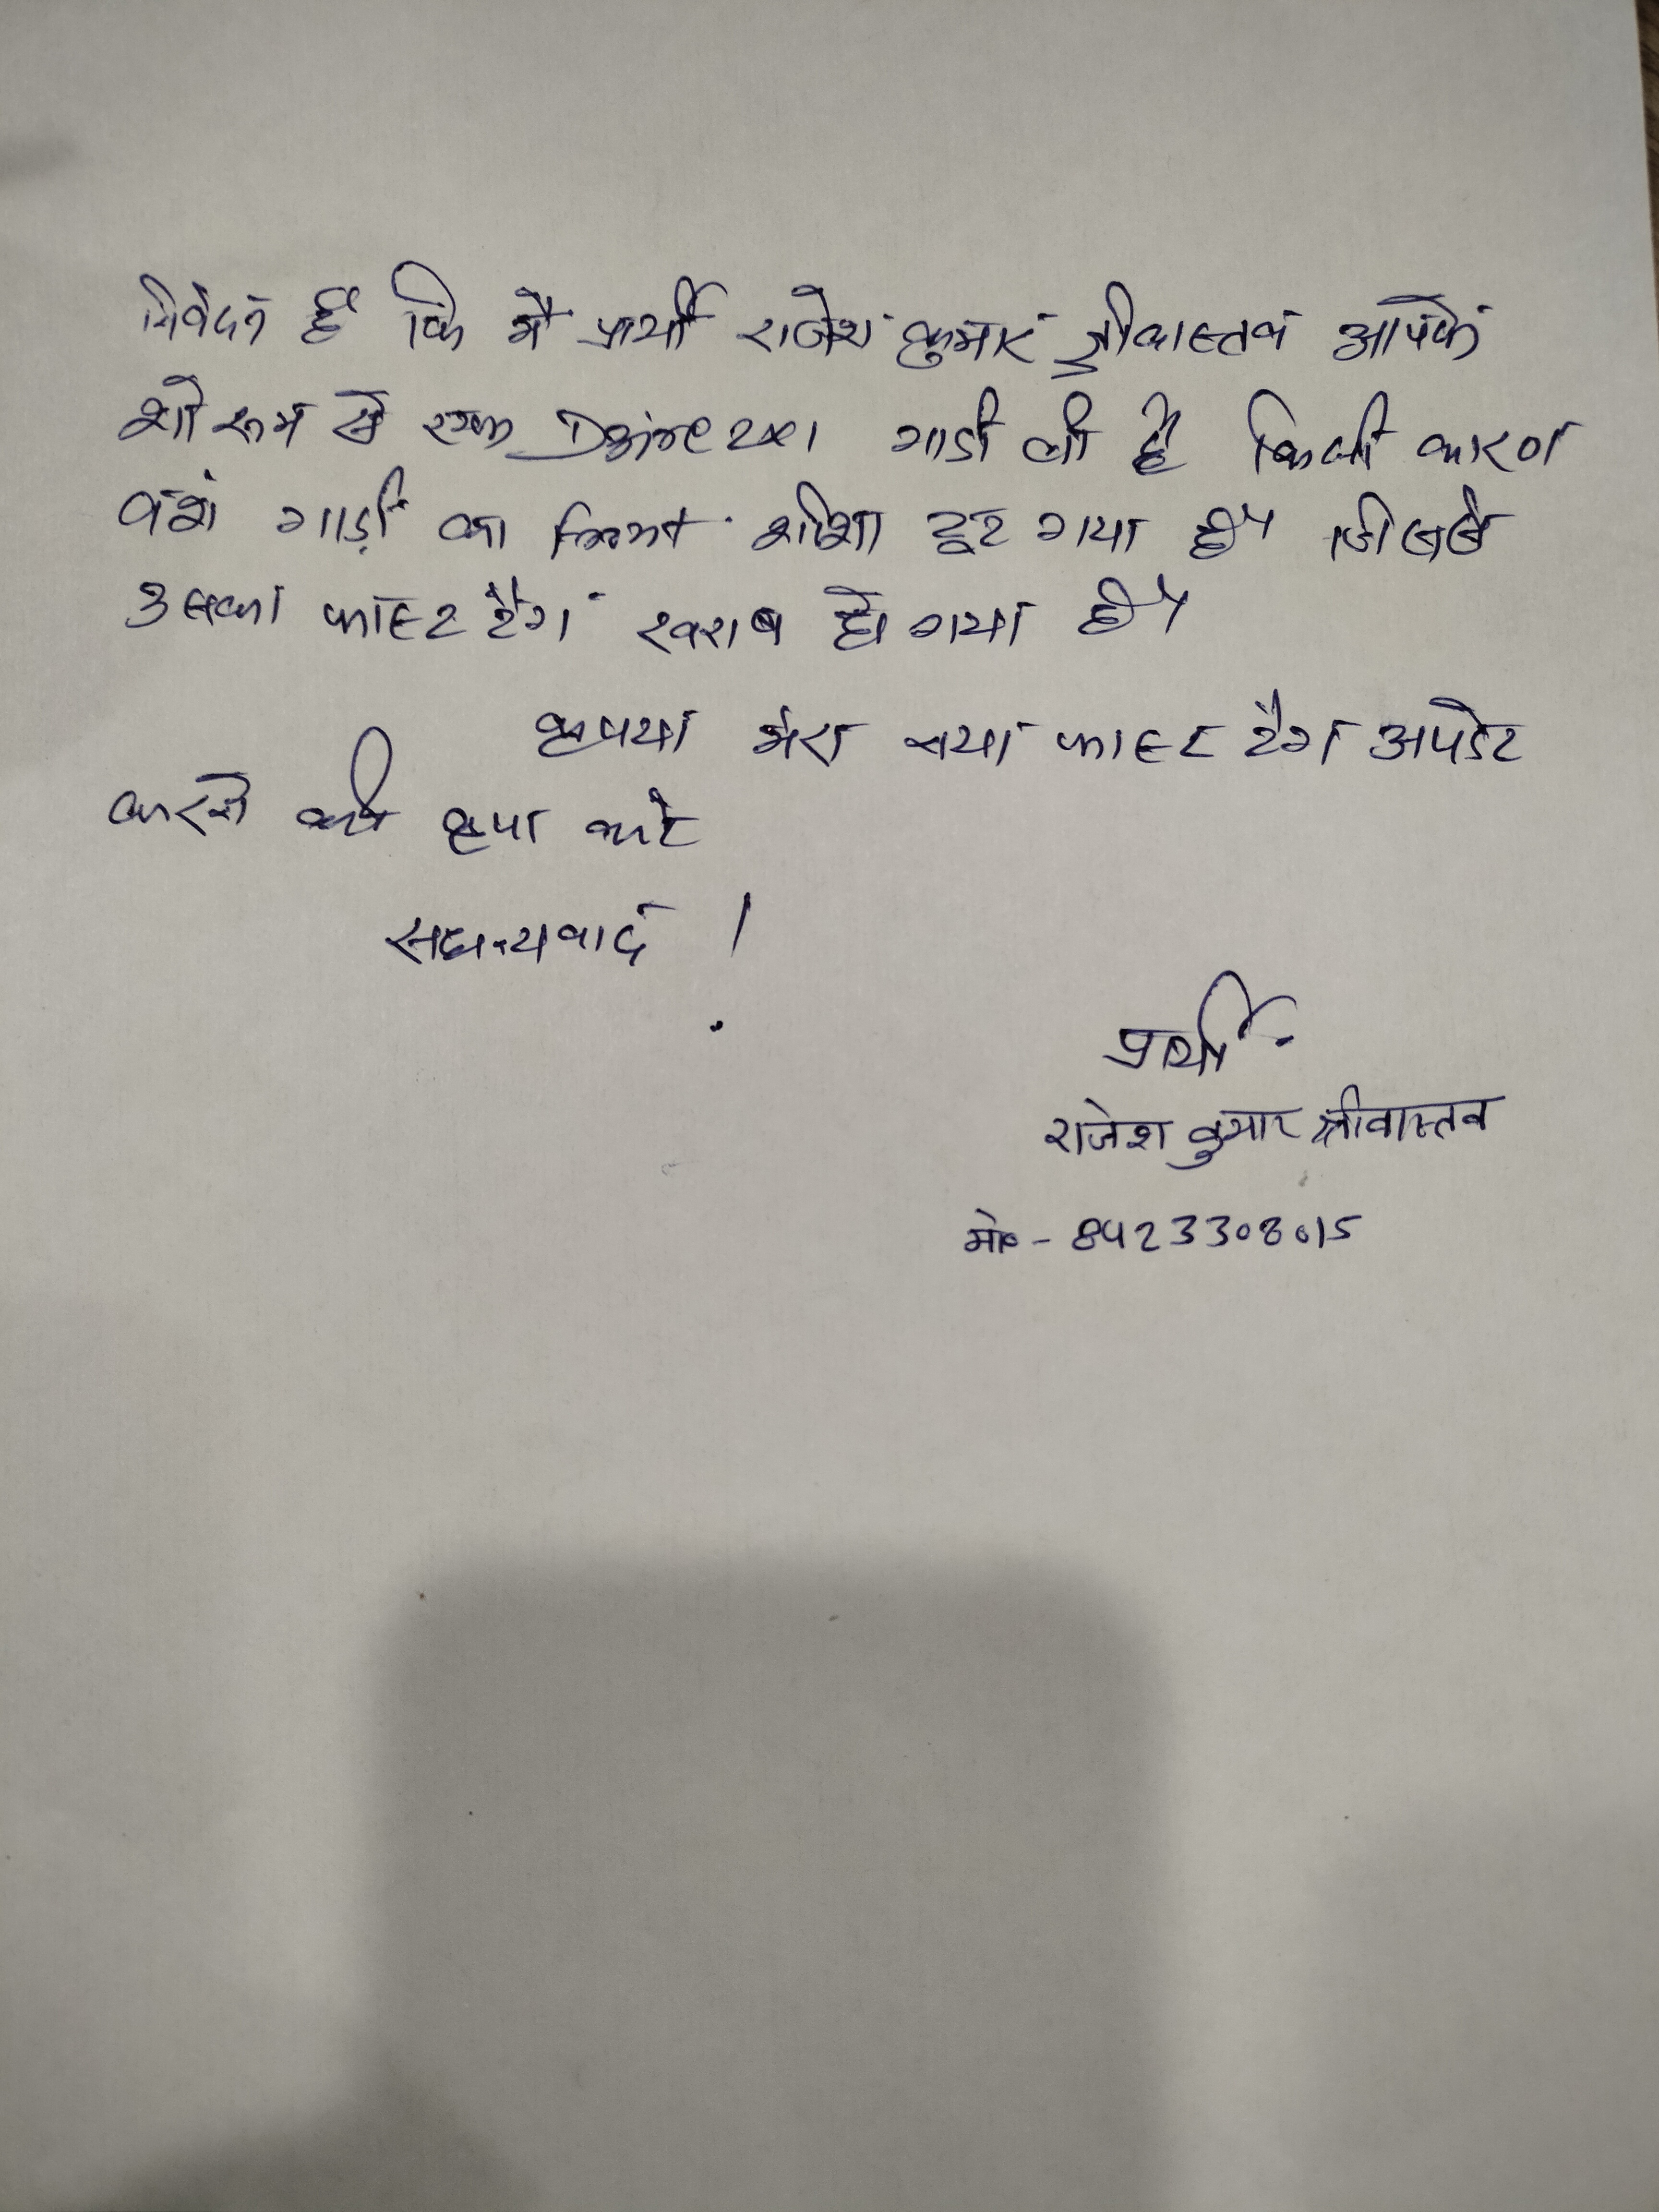 निवेदन है कि मै प्रार्थी राजेश कुमार श्रीवास्तव आपके
शो रूम से एक गाडी ली है किसी कारण
वश गाड़ी का शीशा टूट गया है। जिससे
उसका फास्ट टैग खराब हो गया है।
कृपया मेरा नया फास्ट टैग अपडेट
करने की कृपा करे
सधन्यवाद !
प्रार्थी
राजेश कुमार श्रीवास्तव
मो० - 8423308015